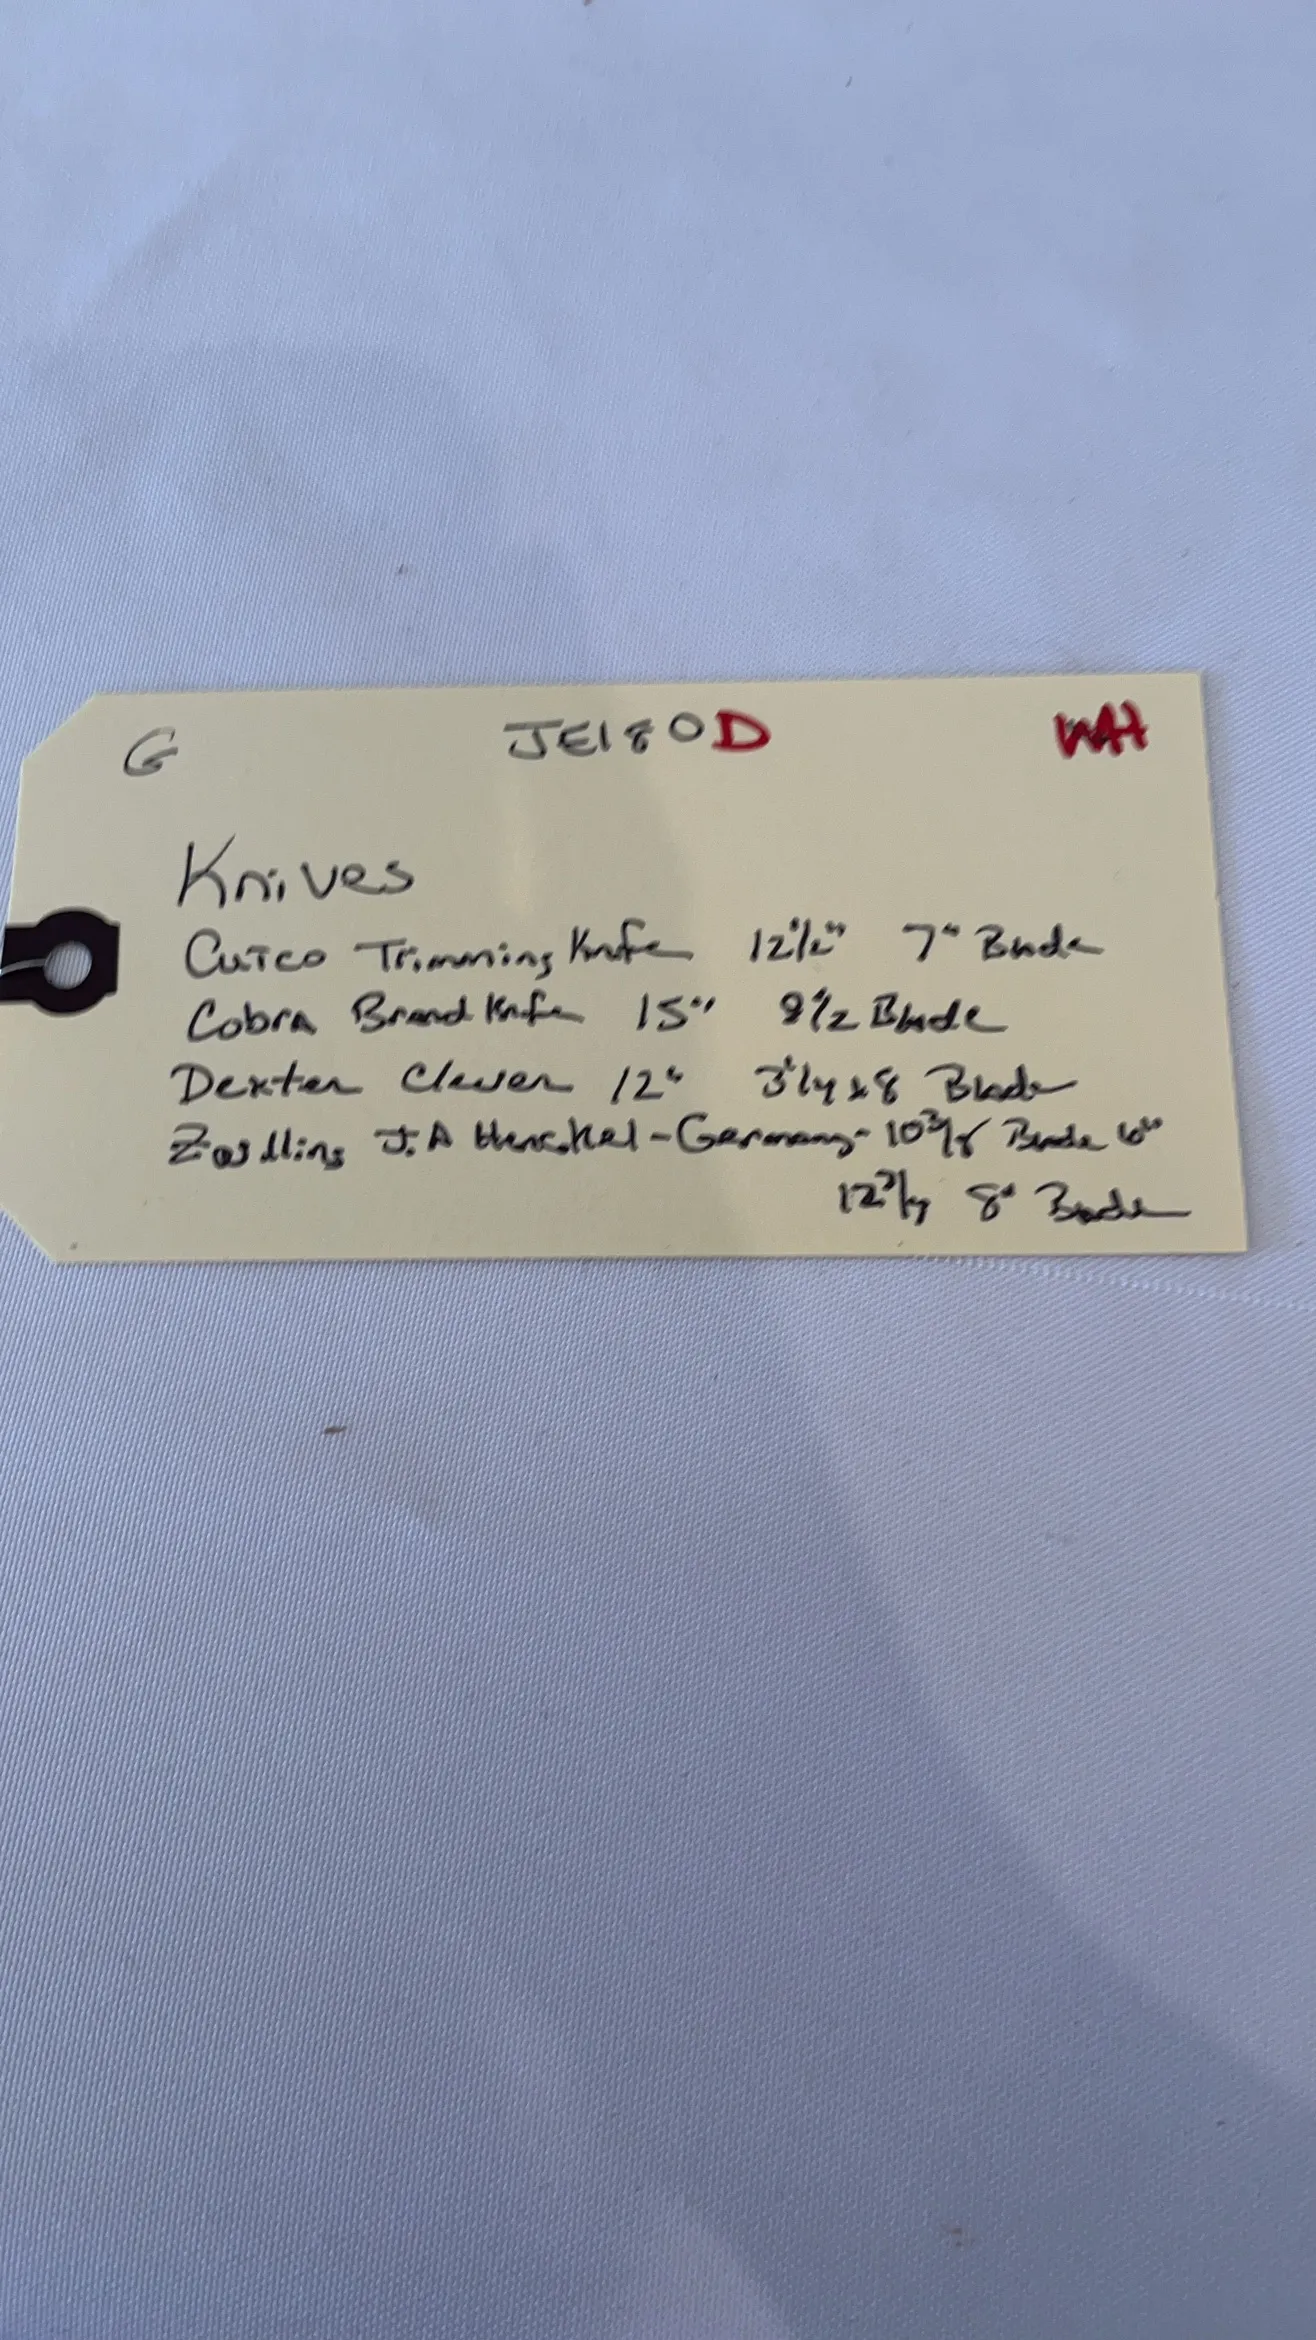 G JE180D WH
Knives
Cutco Trimming Knife 12 1/2" 7" Blade
Cobra Brand Knife 15" 9 1/2 Blade
Dexter Clever 12" 3 1/4 x 8 Blade
J.A Henckel - Germany - 10 3/8 Blade 6"
12 3/4 8" Blade